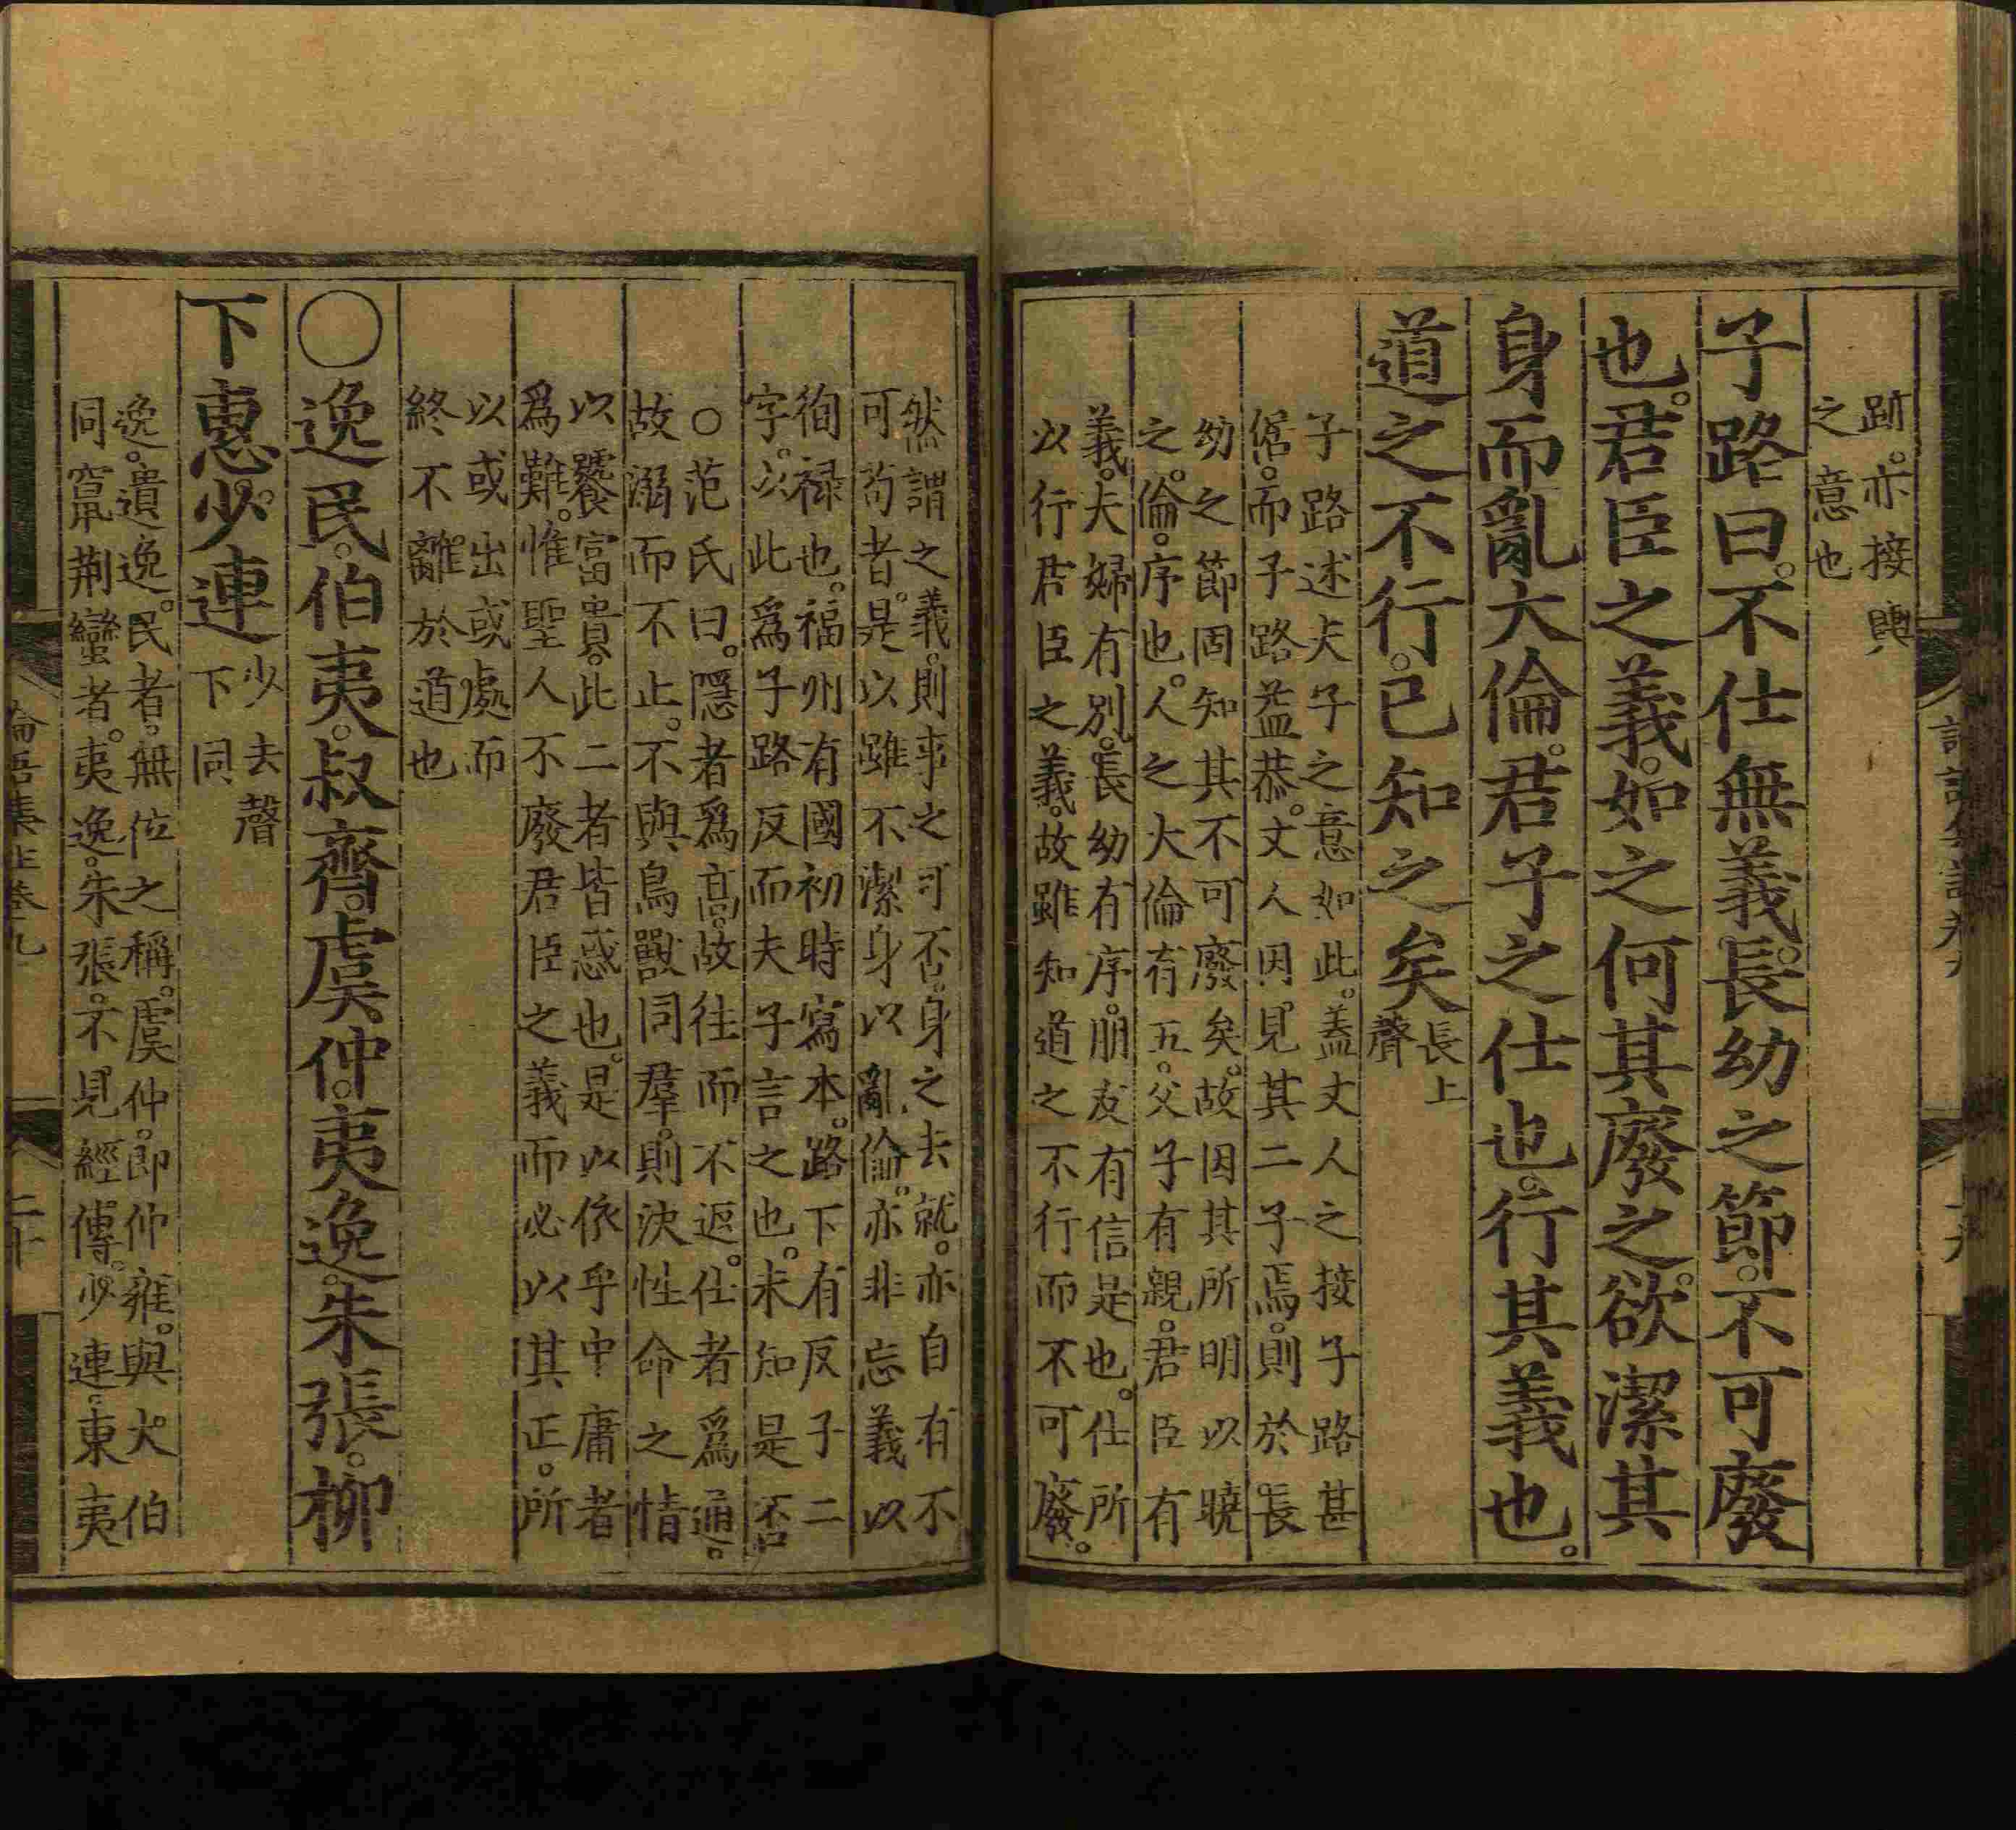 跡。亦接輿
之意也
子路曰。不仕無義。長幼之節。不可廢
也。君臣之義。如之何其廢之。欲潔其
身而亂大倫。君子之仕也。行其義也。
道之不行。已知之矣
長上
聲
子路述夫子之意如此。蓋丈人之接子路甚
倨。而子路益恭。丈人因見其二子焉。則於長
幼之節。固知其不可廢矣。故因其所明以曉
之。倫。序也。人之大倫有五。父子有親。君臣有
義。夫婦有別。長幼有序。朋友有信是也。仕所
以行君臣之義。故雖知道之不行而不可廢。
然謂之義。則事之可否。身之去就。亦自有不
可苟者。是以雖不潔身以亂倫。亦非忘義以
徇祿也。福州有國初時寫本。路下有反子二
字。以此為子路反而夫子言之也。未知是否
○范氏曰。隱者為高。故往而不返。仕者為通。
故溺而不止。不與鳥獸同羣。則決性命之情
以饕富貴。此二者皆惑也。是以依乎中庸者
為難。惟聖人不廢君臣之義而必以其正。所
以或出或處而
終不離於道也
○逸民。伯夷。叔齊。虞仲。夷逸。朱張。柳
下惠。少連
少去聲
下同
逸。遺逸。民者。無位之稱。虞仲。即仲雍。與大伯
同竄荆蠻者。夷逸。朱張。不見經傳。少連。東夷
論語集註卷九
二十